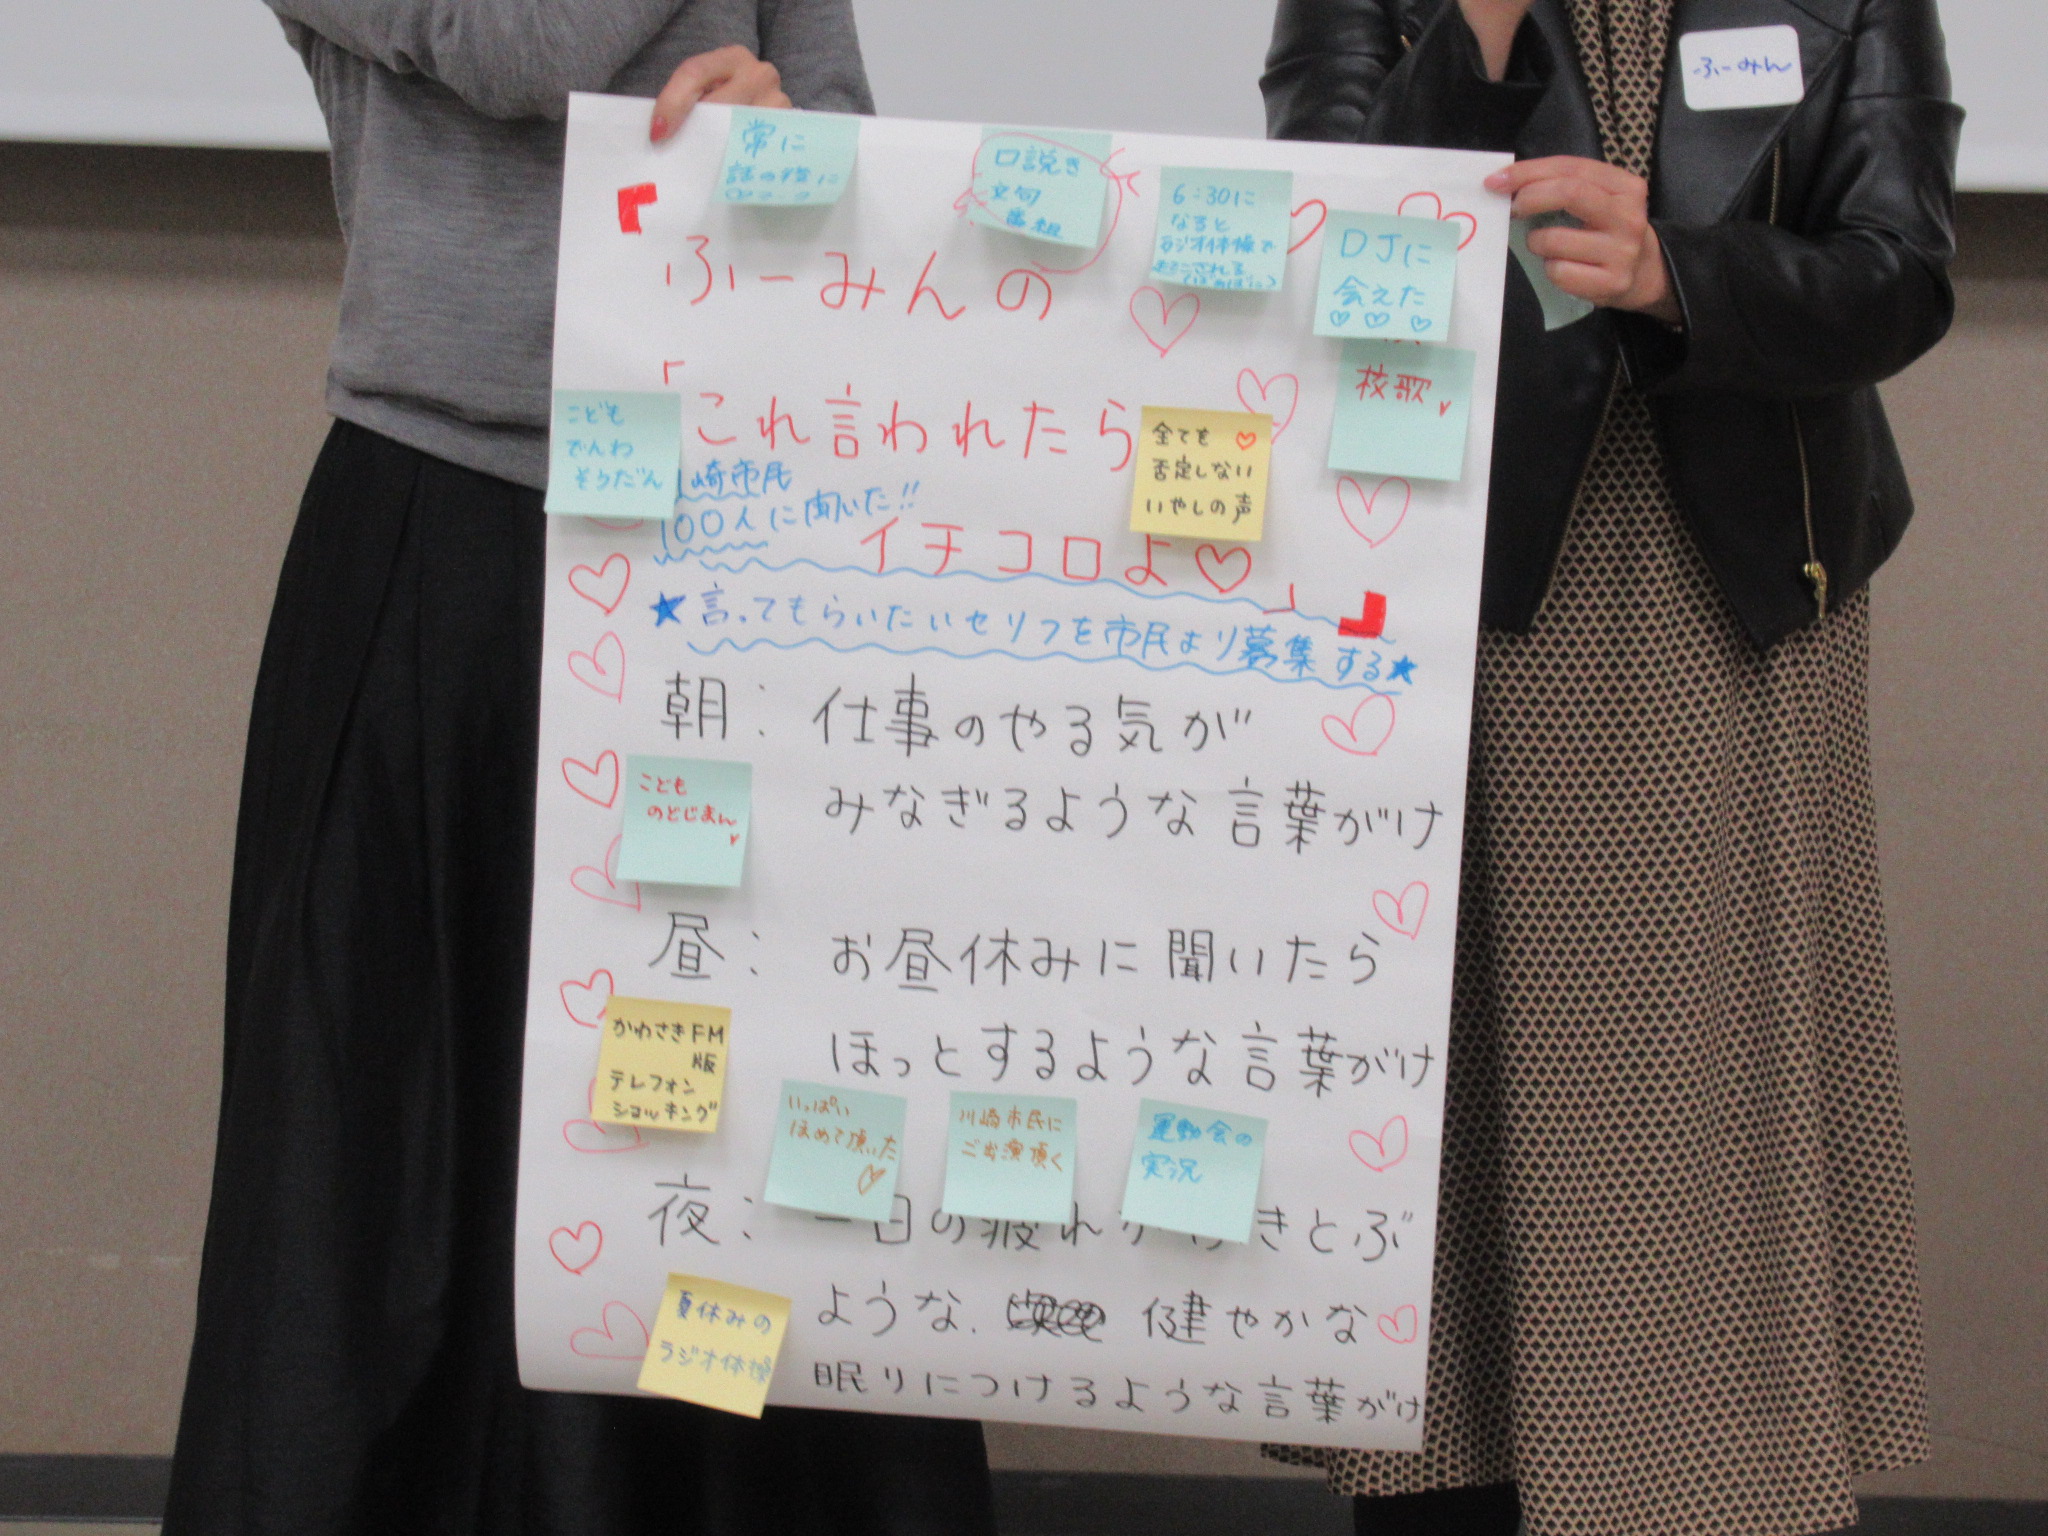 ふーみん
常に
口説き
文句
番組
6:30に
なると
ラジオ体操で
起こされる
DJに
会えた
♡ ♡ ♡
『ふーみんの
校歌
「これ言われたら
イチコロよ♡」』
こども
でんわ
そうだん
全ても♡
否定しない
いやしの声
崎市民
100人に聞いた!!
★言ってもらいたいセリフを市民より募集する★
朝: 仕事のやる気が
みなぎるような言葉がけ
こども
のどじまん
昼: お昼休みに聞いたら
ほっとするような言葉がけ
かわさきFM
版
テレフォン
ショッキング
いっぱい
ほめて頂いた
川崎市民に
ご出演頂く
運動会の
実況
夜: 一日の疲れが きとぶ
ような、 健やかな
眠りにつけるような言葉がけ
夏休みの
ラジオ体操